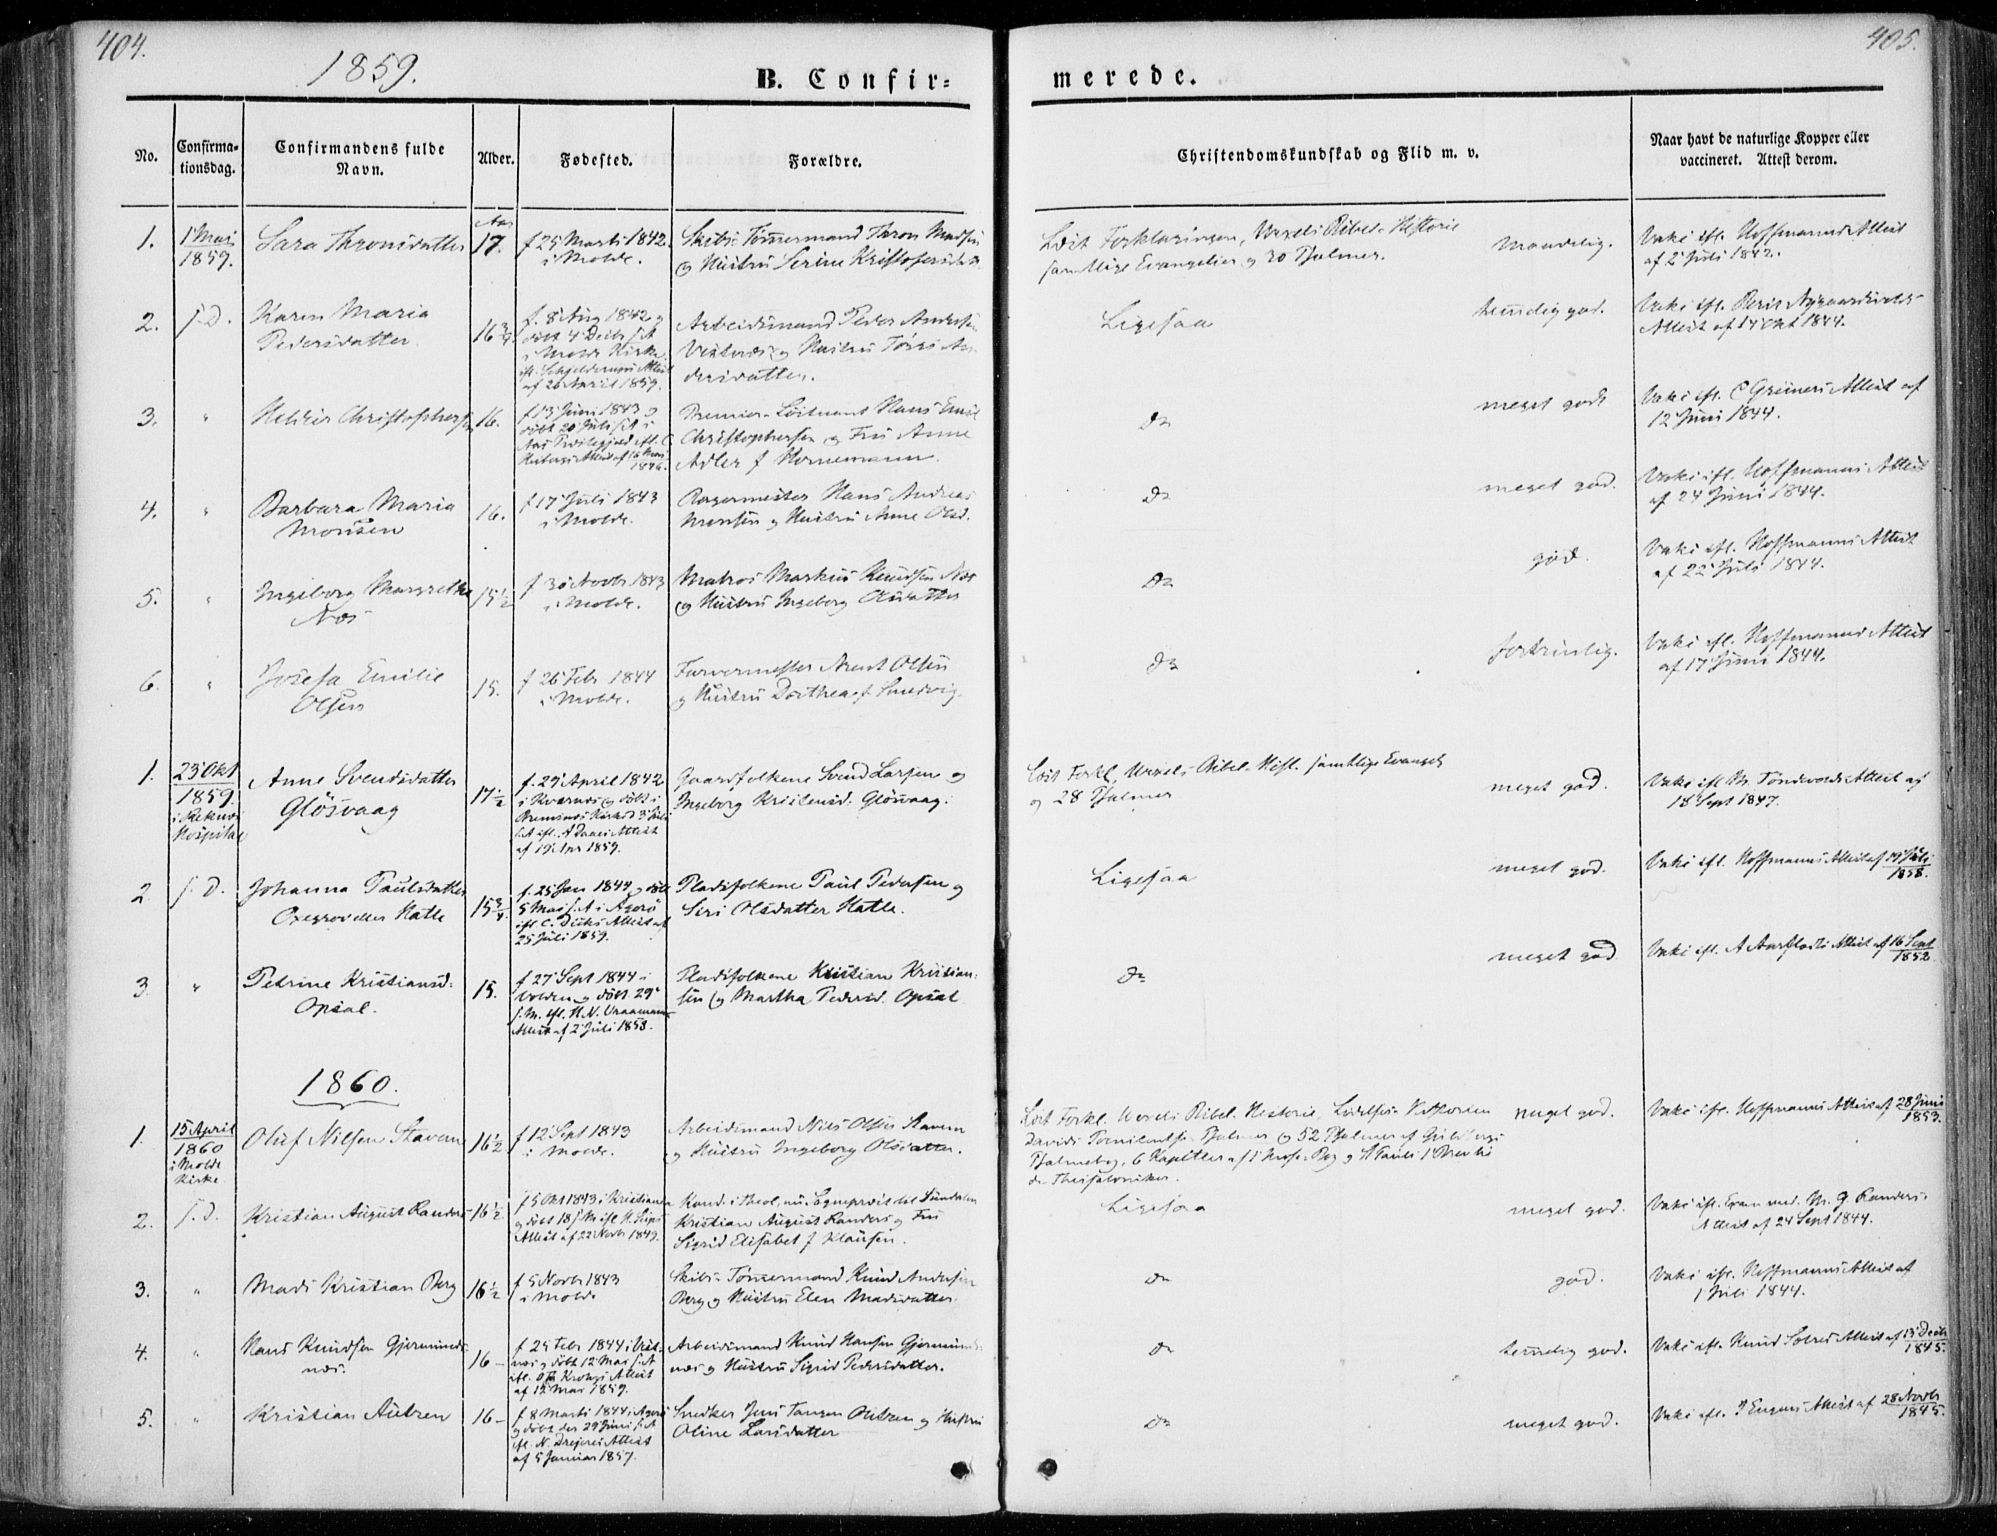 404.
405.
1859.
B. Confir=
merede.
No.
Confirma-
tionsdag.
Confirmandens fulde
Navn.
Alder.
Fødested.
Forældre.
Christendomskundskab og Flid m. v.
Naar havt de naturlige Kopper eller
vaccineret. Attest derom.
1.
1 Mai
1859.
Sara Thronsdatter
Aar
17.
f 25 Marts 1842.
i Molde.
Skibs-Tömmermand Thron Madsen
og Hustru Serine Kristofersdatter
Læst Forklaringen, Vexels Bibel-Historie
samtlige Evangelier og 30 Psalmer.
maadelig.
Vaks. efl. Hoffmanns Attest
af 2 Juli 1842.
2.
s. D.
Karen Maria
Pedersdatter
16 3/4
f. 8 Aug 1842 og
döbt 4 Decbr s. A
i Molde Kirke
efl. Attest
af 26 April 1859.
Arbeidsmand Peder Andersen
og Hustru An-
dersdatter.
Ligesaa
temelig god.
Vaks efl.
Attest af 14 Okt 1844.
3.
"
Christophersen
16.
f 13 Juni 1843 og
döbt 20 Juli s. A i
Premier-Löitnant Hans Emil
Christophersen og Fru Anne
Adler f Hornemann.
do
meget godt
Vaks efl. C Grüners Attest af
12 Juni 1844.
4.
"
Barbara Maria
Monsen
16.
f 17 Juli 1843
i Molde.
Hans Andreas
Monsen og Hustru Anne Olsd.
do
meget god.
Vaks efl. Hoffmanns Attest
af 24 Juni 1844.
5.
"
Ingeborg Margrethe
Næs
15 1/2
f 30 Novbr 1843
i Molde.
Matros Markus Knudsen Næs
og Hustru Ingeborg Olsdatter
do
god.
Vaks efl. Hoffmanns Attest
af 22 Juli 1844.
6.
"
Josefa Emilie
Olsen
15.
f 26 Febr 1844
i Molde.
Farvermester Arent Olsen
og Hustru Dorthea f Smedvig.
do
fortrinlig.
Vaks efl. Hoffmanns Attest
af 17 Juni 1844.
1.
23 Okt
1859.
i Reknes
Hospital
Anne Svendsdatter
Glösvaag
17 1/2
f. 29 April 1842
i Kvernes og döbt i
Bremsnes Kirke d 3 Juli
s. A efl. Attest
af 19 Apr 1859.
Gaardfolkene Svend Larsen og
Ingeborg Kristensd. Glösvaag.
Læst Forkl, Vexels Bibel-Hist. samtlige Evangel,
og 28 Psalmer
meget god.
Vaks efl M. Töndevolds Attest af
18 Sept 1847.
2
s. D.
Johanna Paulsdatter
Hatle
15 3/4.
f. 25 Jan 1844 og döbt
5 Mai s. A i Agerö
efl C. Dicks Attest af
25 Juli 1859.
Pladsfolkene Paul Pedersen og
Siri Olsdatter Hatle.
Ligesaa
meget god.
Vaks efl. Hoffmanns Attest af 19 Juli
1858.
3
"
Petrine Kristiansd:
Opsal.
15.
f 27 Sept 1844 i
Volden og döbt 29
s. M. efl. H. N.
Attest af 2 Juli 1858.
Pladsfolkene Kristian Kristian-
sen og Martha Pedersd. Opsal
do
meget god
Vaks efl. A Aarflots Attest af 16 Sept
1852
1860.
1.
15 April
1860
i Molde
Kirke
Oluf Nilsen Stavem
16 1/2
f 12 Sept 1843
i Molde.
Arbeidsmand Nils Olsen Stavem
og Hustru Ingeborg Olsdatter.
Læst Forkl. Vexels Bibel-Historie, Lidelses-Historien
Davids Psalmer og 52 Psalmer af Guldbergs
Psalmebog, 6 Kapitler af 1 Mose-Bog og St Pauli 1 Brev til
de Thessaloniker.
meget god.
Vaks. efl. Hoffmanns Attest af 28 Juni
1853.
2.
s. D.
Kristian August Randers
16 1/2
f 5 Okt 1843 i Kristiania
og döbt 18 s. M. efl H.
Attest af 22 Novbr 1849.
Kand. i theol, nu Sogneprest til Sundalen
Kristian August Randers og Fru
Sigrid Elisabet f Klausen.
Ligesaa
meget god.
Vaks efl. Exam. med. Randers
Attest af 24 Sept 1844.
3.
"
Mads Kristian Berg
16 1/2
f 5 Novbr 1843
i Molde
Skibs-Tömmermand Knud Andersen
Berg og Hustru Elen Madsdatter.
do
god.
Vaks efl. Hoffmanns Attest af
1 Juli 1844.
4.
"
Hans Knudsen Gjermunds-
næs.
16 -
f 25 Febr 1844 i
næs og döbt 12 Mai s. A
efl. Krohgs Attest
af 12 Mai 1859.
Arbeidsmand Knud Hansen Gjermunds-
næs og Hustru Sigrid Pedersdatter.
do
temelig god.
Vaks efl. Knud Attest af 13 Decbr
1845.
5.
"
Kristian
16 -
f 8 Marts 1844 i Agerö
og döbt der 29 Juni s. A
efl. N. Drejers Attest
af 5 Januar 1857.
Snedker Jens og Hustru
Oline Larsdatter
do
meget god.
Vaks efl. Attest af 28 Novbr
1845.